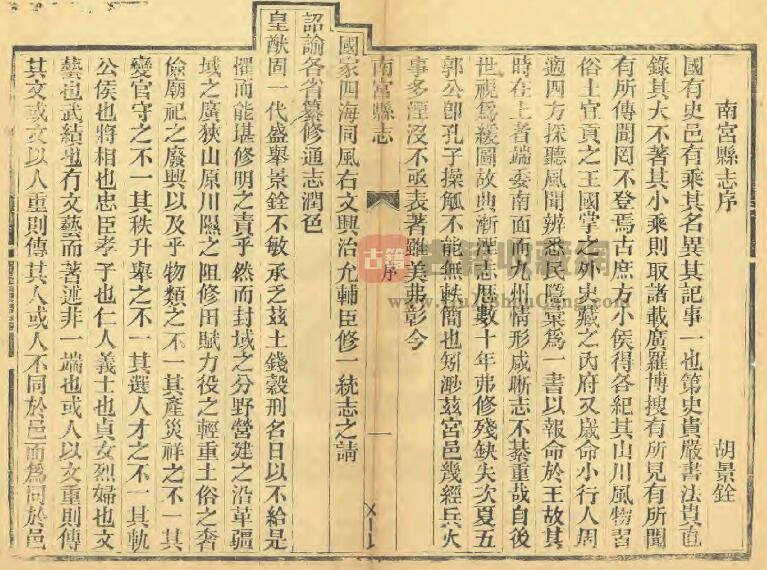 南宮縣志序
胡景銓
國有史邑有乘其名異其記事一也第史貴嚴書法貴直
錄其大不著其小乘則取諸載廣羅博搜有所見有所聞
有所傳聞罔不登焉古庶方小侯得各紀其山川風物習
俗土宜貢之王國掌之外史藏之內府又歲命小行人周
適四方探聽風聞辨悉民隱彙爲一書以報命於王故其
時在上者端委南面而九州情形咸晰志不綦重哉自後
世視爲緩圖故典漸湮志歷數十年弗修殘缺失次夏五
郭公卽孔子操觚不能無軼簡也矧渺茲宮邑幾經兵火
事多湮沒不亟表著雖美弗彰今
南宮縣志
序
一
國家四海同風右文興治允輔臣修一統志之請
詔諭各省纂修通志潤色
皇猷固一代盛舉景銓不敏承乏茲土錢穀刑名日以不給是
懼而能堪修明之責乎然而封域之分野營建之沿革疆
域之廣狹山原川隰之阻修田賦力役之輕重土俗之奢
儉廟祀之廢興以及乎物類之不一其產災祥之不一其
變官守之不一其秩升舉之不一其選人才之不一其軌
公侯也將相也忠臣孝子也仁人義士也貞女烈婦也文
藝也武績也冇文藝而著述非一端也或人以文重則傳
其文或文以人重則傳其人或人不同於邑而爲同於邑
古籍收藏網